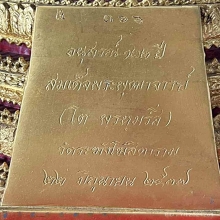 ๕ ๑๑๖
อนุสรณ์ ๑๒๒ ปี
สมเด็จพระพุฒาจารย์
(โต พรหมรังสี)
วัดระฆังโฆสิตาราม
๒๒ มิถุนายน ๒๕๓๗